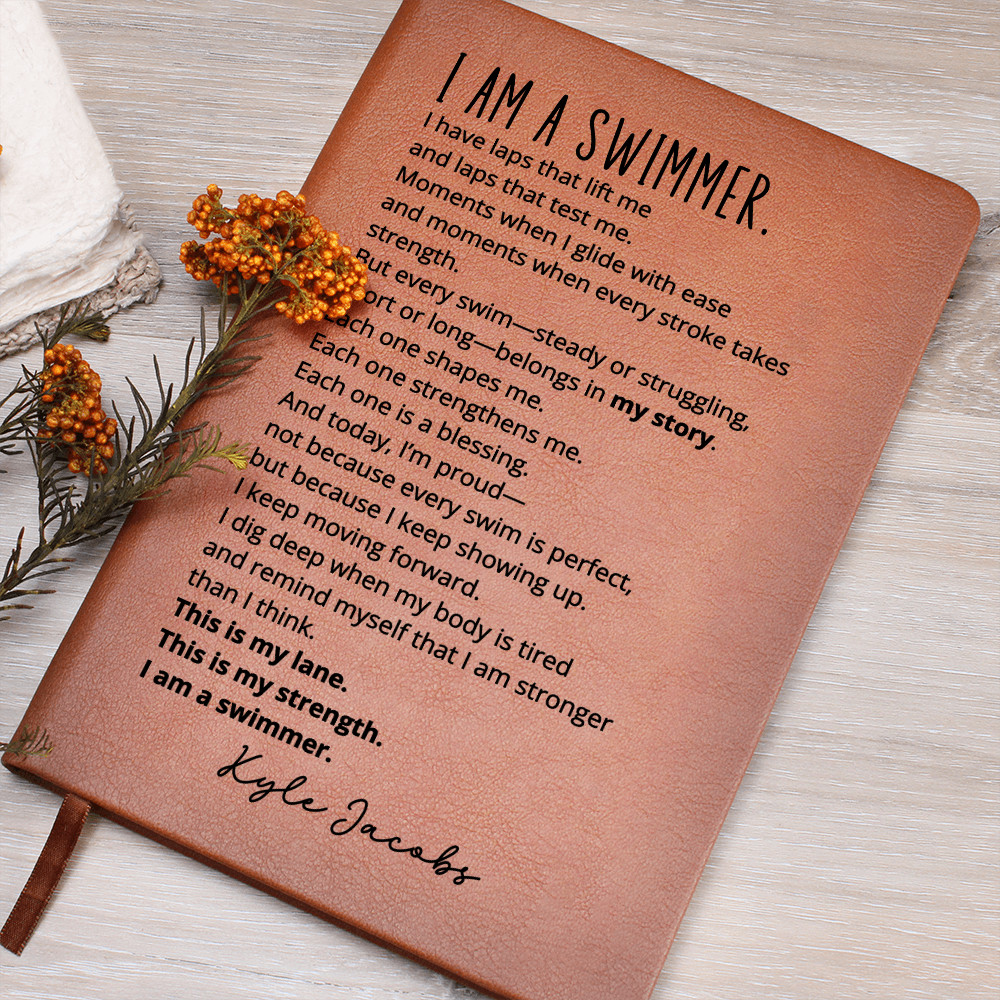 I AM A SWIMMER.
I have laps that lift me
and laps that test me.
Moments when I glide with ease
and moments when every stroke takes
strength.
But every swim—steady or struggling,
or long—belongs in my story.
Each one shapes me.
Each one strengthens me.
Each one is a blessing.
And today, I'm proud—
not because every swim is perfect,
but because I keep showing up.
I keep moving forward.
I dig deep when my body is tired
and remind myself that I am stronger
than I think.
This is my lane.
This is my strength.
I am a swimmer.
Kyle Jacobs